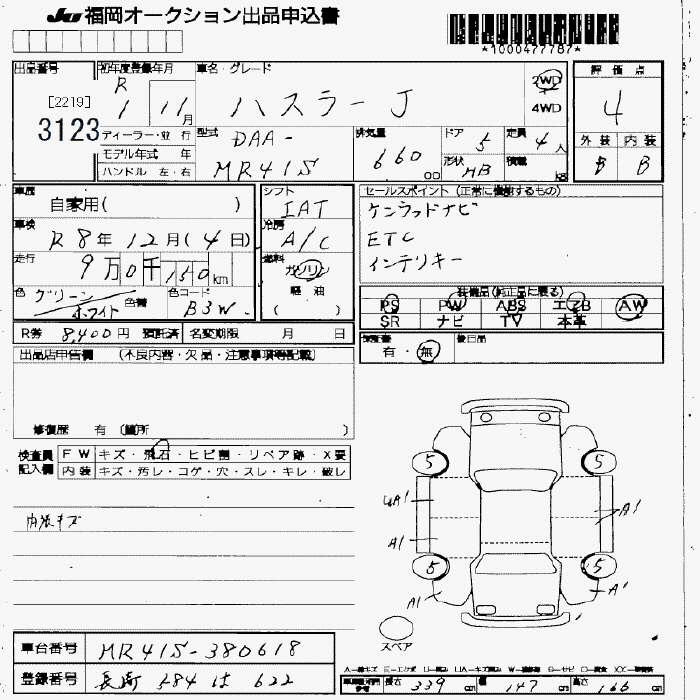 JU 福岡オークション出品申込書
*1000477787*
出品番号
[2219]
3123
初年度登録年月
R 1 11月
ディーラー・並行
モデル年式 年
ハンドル 左・右
車名・グレード
ハスラー J
2WD
4WD
型式 DAA-
MR41S
排気量
660 cc
ドア 5
形状 HB
定員 4人
積載 kg
評価点
4
外装 内装
B B
車歴
自家用( )
車検
R 8年 12月(4日)
走行
9万0千150km
色 グリーン ホワイト
色替
色コード
B3W
シフト
IAT
冷房
A/C
燃料
ガソリン
軽油
( )
セールスポイント (正常に機能するもの)
ケンウッドナビ
ETC
インテリキー
装備品(純正品に限る)
PS PW ABS エアB AW
SR ナビ TV 本革
R券 8,400円 預託済 名変期限 月 日
検査書
有・無
後日品
出品店申告欄 (不良内容・欠品・注意事項等記載)
修復歴 有 (箇所 )
検査員
記入欄
FW キズ・飛石・ヒビ割・リペア跡・X要
内装 キズ・汚レ・コゲ・穴・スレ・キレ・破レ
内張キズ
5 5
UA1
A1
A1
5 5
A1 A1
スペア
車台番号 MR41S-380618
登録番号 長崎 584 は 622
長さ 339 cm 幅 147 cm 高さ 166 cm